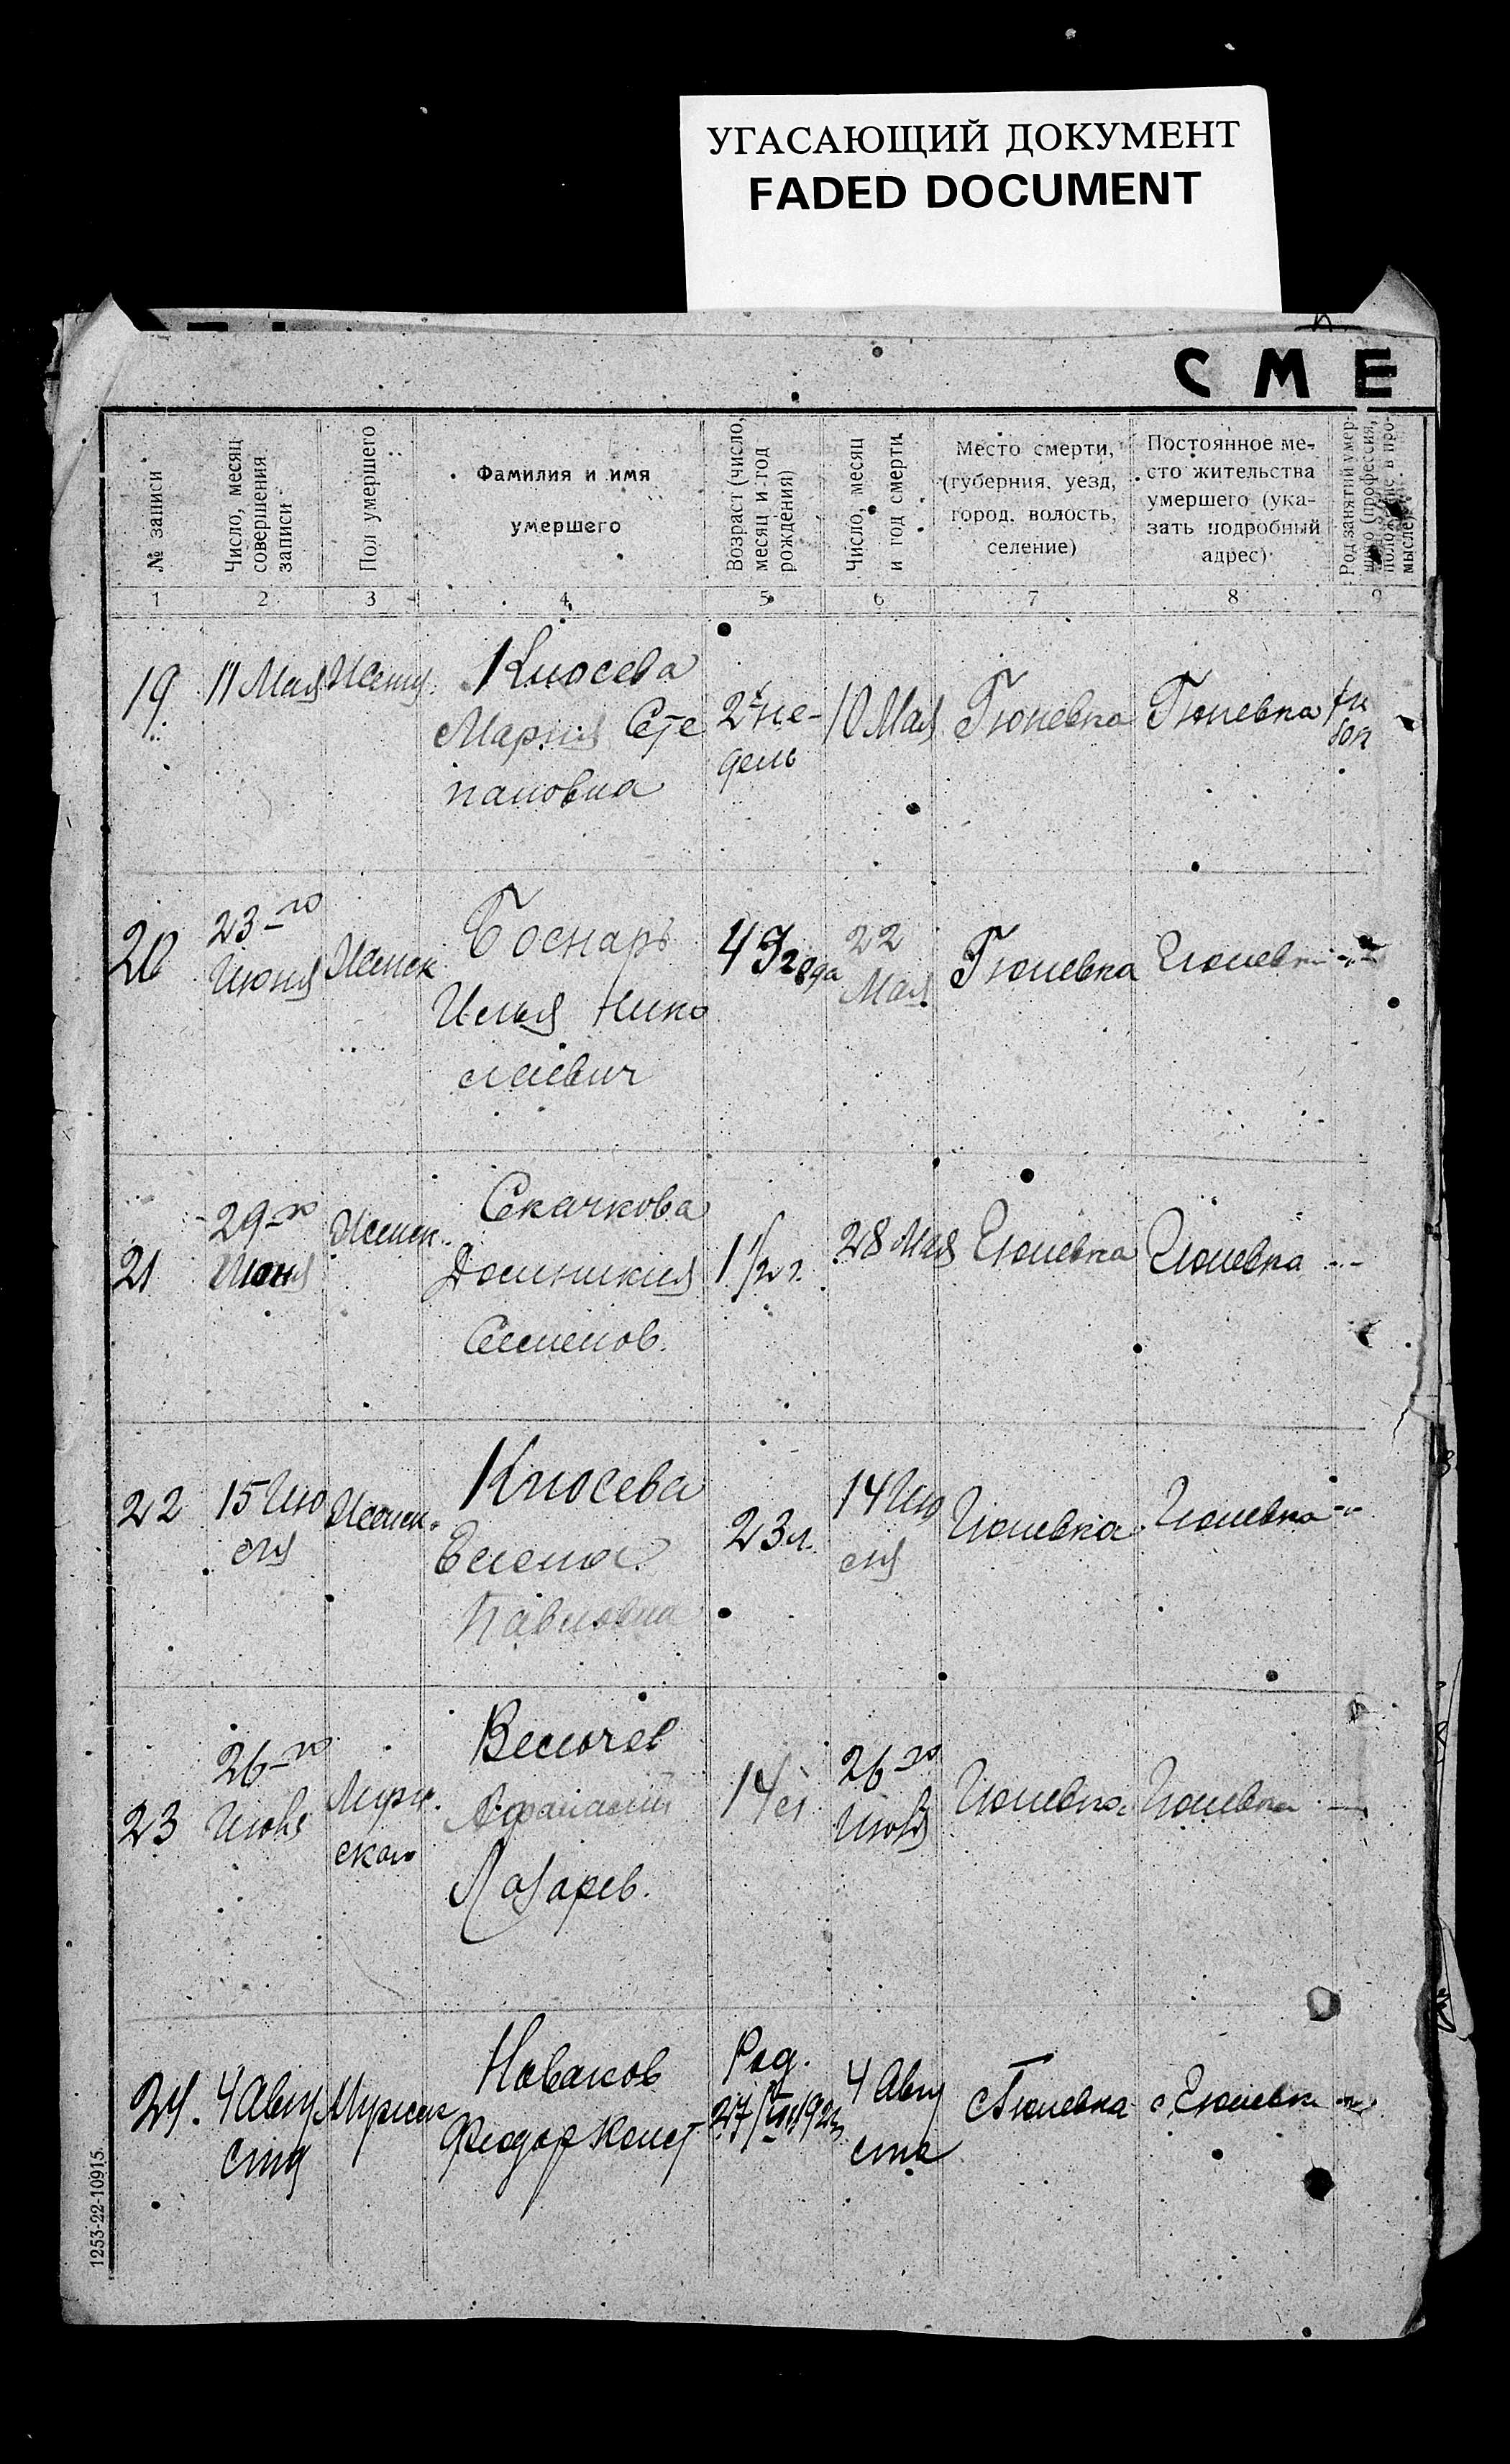 УГАСАЮЩИЙ ДОКУМЕНТ
FADED DOCUMENT
СМЕ
№ записи
Число, месяц
совершения
записи
Пол умершего
Фамилия и имя
умершего
Возраст (число,
месяц и год
рождения)
Число, месяц
и год смерти
Место смерти,
(губерния, уезд,
город, волость,
селение)
Постоянное ме-
сто жительства
умершего (ука-
зать подробный
адрес)
Род занятий умер-
шего (профессия,
положение в про-
мысле)
1 2 3 4 5 6 7 8 9
19
11 Мая
Кносева
Мария Сте
пановна
2 не-
дель
10 Мая
Гюневка
Гюневка
20
23-го
Июня
Женск
Боснарь
Илья Нико
лаевич
22
Мая
Гюневка
Гюневка
21
29-го
Июня
Женск.
Скачкова
Домникия
Семенов.
1 1/2 г.
28 Мая
Гюневка
Гюневка
22
15 Ию
ля
Женск.
Кносева
Елена
Павловна
23 л.
14 Ию
ля
Гюневка
Гюневка
23
26-го
Июля
Мужс.
ского
Велючев
Афанасий
Лазарев.
14 л
26-го
Июля
Гюневка
Гюневка
24.
4 Авгу
ста
Мужск
Новаков
Феодор Конст
Род.
4 Авгу
ста
с Гюневка
с. Гюневка
1253-22-10915